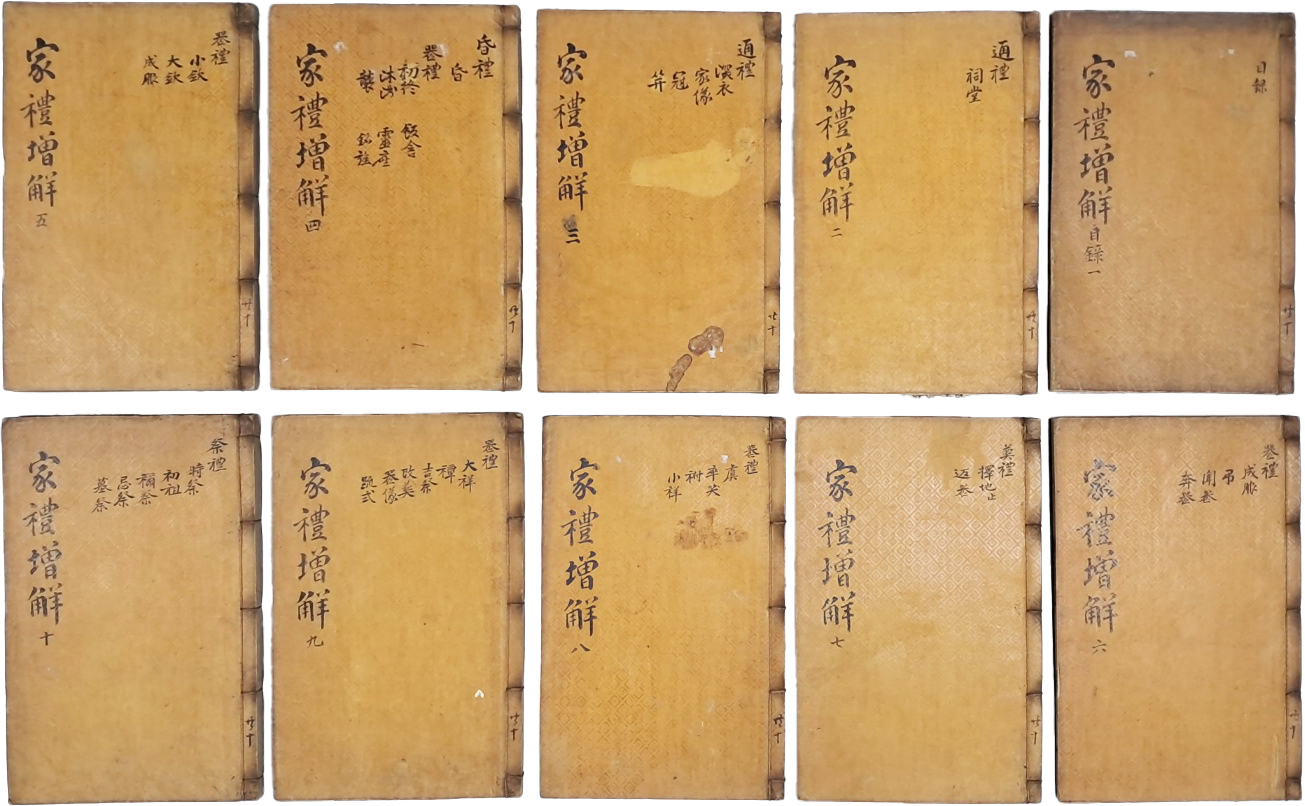 目錄
家禮增解目錄一
共十
通禮
祠堂
家禮增解二
共十
通禮
深衣
家儀
冠
笄
家禮增解三
共十
昏禮
昏
喪禮
初終
沐浴
襲
飯含
靈座
銘旌
家禮增解四
共十
喪禮
小斂
大斂
成服
家禮增解五
共十
喪禮
成服
吊
聞喪
奔喪
家禮增解六
共十
葬禮
擇地
返
家禮增解七
共十
喪禮
虞
卒哭
祔
小祥
家禮增解八
共十
喪禮
大祥
禫
吉祭
改葬
喪儀
疏式
家禮增解九
共十
祭禮
時祭
初祖
禰祭
忌祭
墓祭
家禮增解十
共十